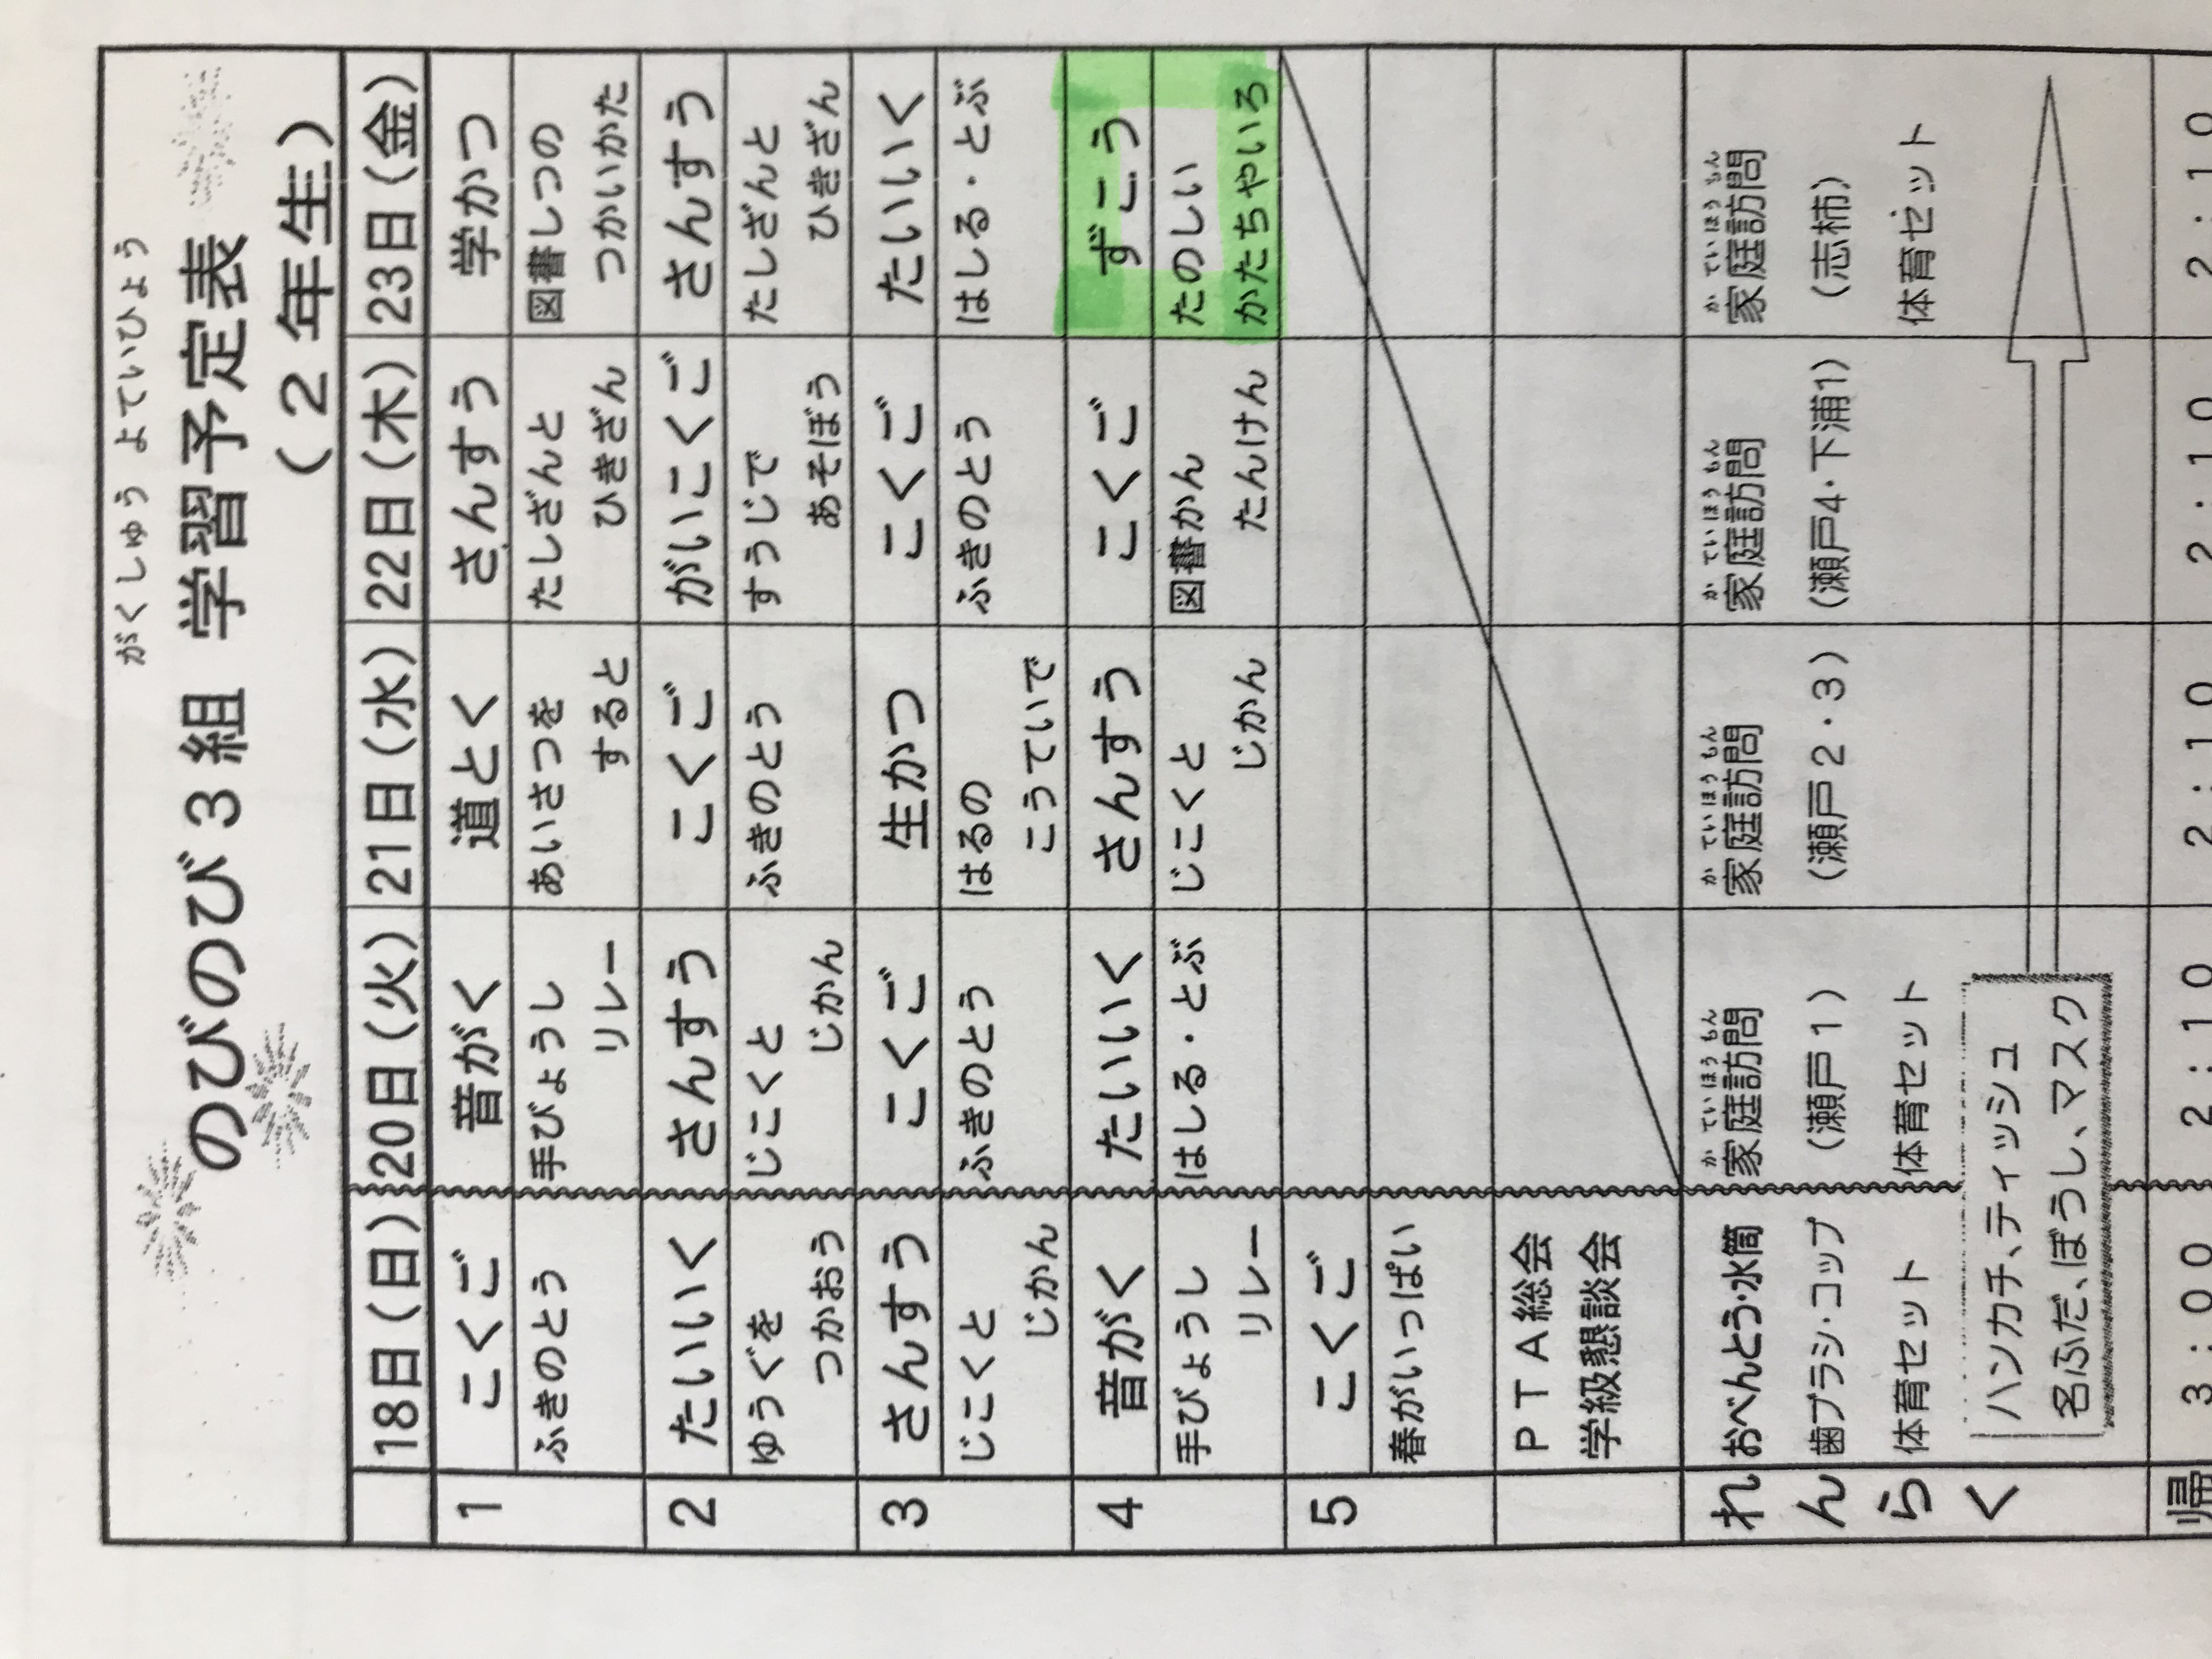 がくしゅう よていひょう
のびのび３組 学習予定表
（２年生）
18日（日） 20日（火） 21日（水） 22日（木） 23日（金）
1 こくご 音がく 道とく さんすう 学かつ
ふきのとう 手びょうし あいさつを たしざんと 図書しつの
リレー すると ひきざん つかいかた
2 たいいく さんすう こくご がいこくご さんすう
ゆうぐを じこくと ふきのとう すうじで たしざんと
つかおう じかん あそぼう ひきざん
3 さんすう こくご 生かつ こくご たいいく
じこくと ふきのとう はるの ふきのとう はしる・とぶ
じかん こうていで
4 音がく たいいく さんすう こくご ずこう
手びょうし はしる・とぶ じこくと 図書かん たのしい
リレー じかん たんけん かたちやいろ
5 こくご
春がいっぱい
ＰＴＡ総会
学級懇談会
か てい ほう もん か てい ほう もん か てい ほう もん か てい ほう もん
れ おべんとう・水筒 家庭訪問 家庭訪問 家庭訪問 家庭訪問
ん 歯ブラシ・コップ （瀬戸１） （瀬戸２・３） （瀬戸4・下浦1） （志柿）
ら 体育セット 体育セット 体育ゼット
く ハンカチ、ティッシュ
名ふだ、ぼうし、マスク
帰 3：00 2：10 2：10 2：10 2：10